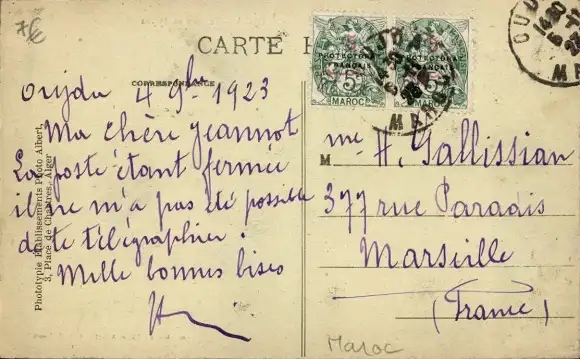 7€
CARTE P
CORRESPONDANCE
Oujda 4 9bre 1923
Ma chère Jeannot
La poste étant fermée
il ne m'a pas été possible
de te télégraphier.
Mille bonnes bises
H
Phototypie Etablissements Photo Albert,
3, Place de Chartres, Alger
5 PROTECTORAT FRANÇAIS 5
MAROC
5 PROTECTORAT FRANÇAIS 5
MAROC
OUJDA
MAROC
M me H. Gallissian
377 rue Paradis
Marseille
(France)
Maroc